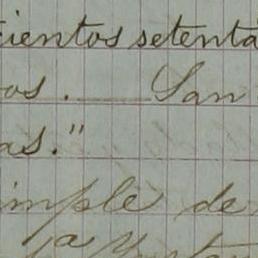 cientos setenta
os. San
as."
imple de
la